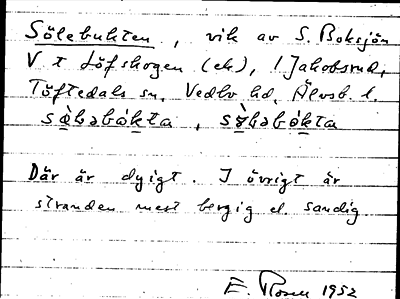 Sölebukten, vik av S. Boksjön
V t Löfskogen (ek), 1 Jakobsrud,
Töftedals sn, Vedbo hd, Älvsb. l.
sòləbókta, sỳləbókta
Där är dyigt. I övrigt är
stranden mest bergig el. sandig.
E. 1952